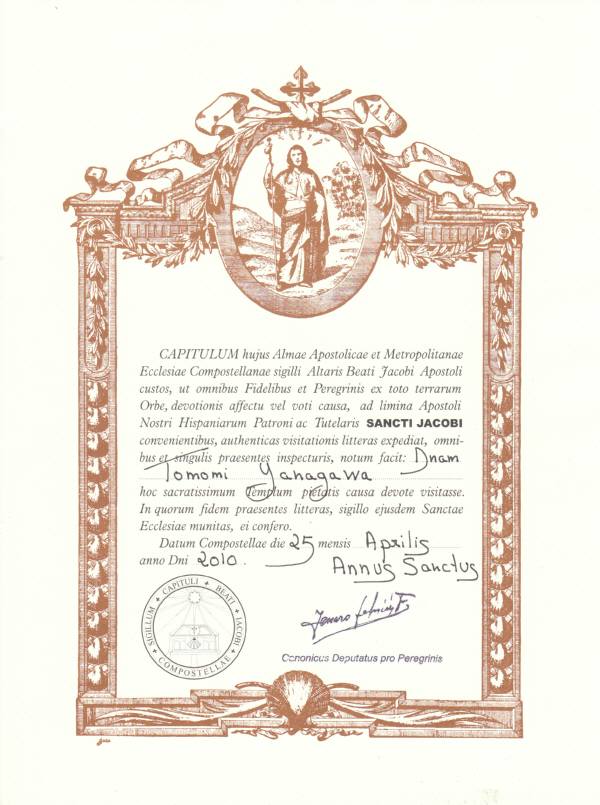 CAPITULUM hujus Almae Apostolicae et Metropolitanae
Ecclesiae Compostellanae sigilli Altaris Beati Jacobi Apostoli
custos, ut omnibus Fidelibus et Peregrinis ex toto terrarum
Orbe, devotionis affectu vel voti causa, ad limina Apostoli
Nostri Hispaniarum Patroni ac Tutelaris SANCTI JACOBI
convenientibus, authenticas visitationis litteras expediat, omni-
bus et singulis praesentes inspecturis, notum facit: Dnam
Tomomi Yanagawa
hoc sacratissimum Templum pietatis causa devote visitasse.
In quorum fidem praesentes litteras, sigillo ejusdem Sanctae
Ecclesiae munitas, ei confero.
Datum Compostellae die 25 mensis Aprilis
anno Dni 2010.
Annus Sanctus
SIGILLUM + CAPITULI + BEATI + JACOBI + COMPOSTELLAE +
Canonicus Deputatus pro Peregrinis